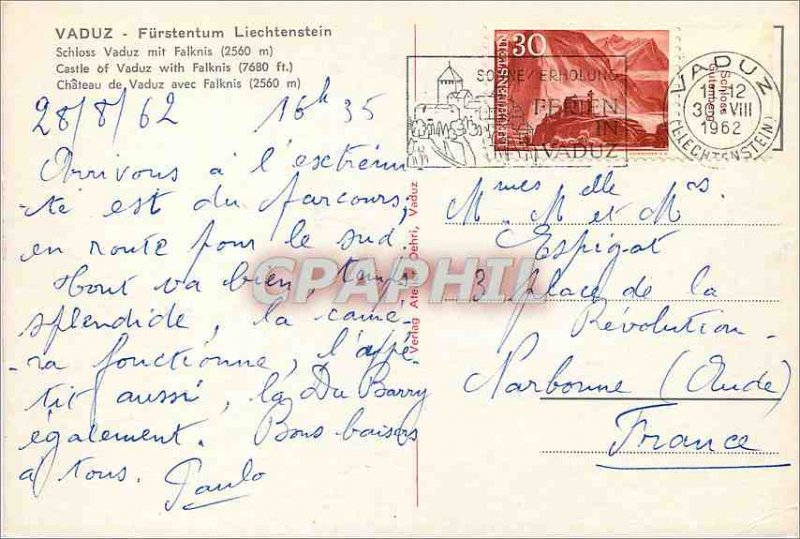 VADUZ - Fürstentum Liechtenstein
Schloss Vaduz mit Falknis (2560 m)
Castle of Vaduz with Falknis (7680 ft.)
Château de Vaduz avec Falknis (2560 m)
28/8/62 16h 35
Arrivons à l'extrémi
-té est du parcours,
en route pour le sud.
Tout va bien, temps
splendide, la camé-
ra fonctionne, l'appé-
tit aussi, la Du Barry
également. Bons baisers
à tous. Paulo
Verlag Atelier Oehri, Vaduz
30
LIECHTENSTEIN
Schloss
Gutenberg
SONNE/ERHOLUNG
FERIEN
IN
VADUZ
VADUZ
VIII
1962
(LIECHTENSTEIN)
Mmes Melle et Mrs
Espigat
3 place de la
Révolution
Narbonne (Aude)
France
CPAPHIL